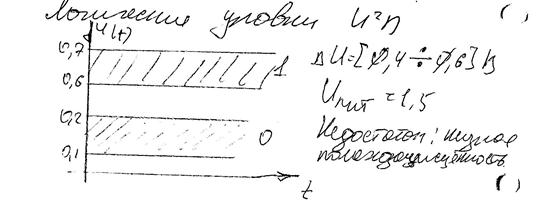 Логические уровни И²Л
U(t)
0,7
0,6
0,2
0,1
1
0
t
ΔU=[0,4÷0,6]В
Uпит =1,5
Недостаток: низкая